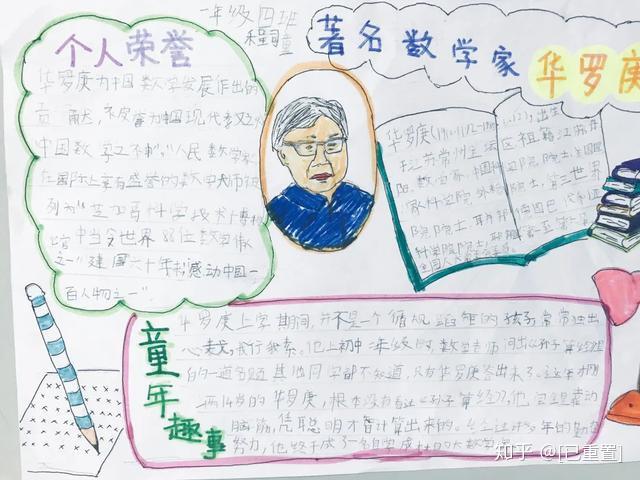 一年级四班
著名数学家
华罗庚
个人荣誉
华罗庚为中国数学发展作出的
贡献,被誉为中国现代数学之父
中国数学之
人民数学家
在国际上享有盛誉的数学大师
列为"芝加哥科学技术博物
馆中当今世界88位数学伟
之一"建国六十年感动中国一
百人物之一"
华罗庚
出生
江苏常州金坛
区祖籍江苏丹
阳,数学家,中国科
学院院士,美国国
家科学院外籍
院士,第三世界
科学院院士
全国人
童年趣事
华罗庚上学期间,并不是一个循规蹈矩的孩子,常常独出
心裁,我行我素。他上初中
年级时数学老师
出《孙子算经》
的一道名题,其他同学都不知道,只有华罗庚答出来了。这年才刚
满14岁的华罗庚,根本没有看过《孙子算经》,他完全靠动
脑筋,凭聪明才智计算出来的。
年的勤奋
努力,他终于成了一名自学成才的大数学家
知乎 @[已重置]